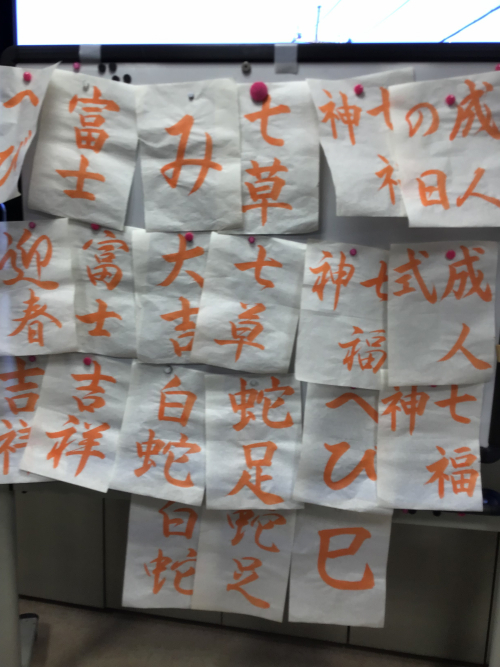 成人
の日
七
神
七草
み
富士
へび
成人
式
七福
神
七草
大吉
富士
迎春
七福
神
へひ
蛇足
白蛇
吉祥
吉祥
巳
蛇足
白蛇